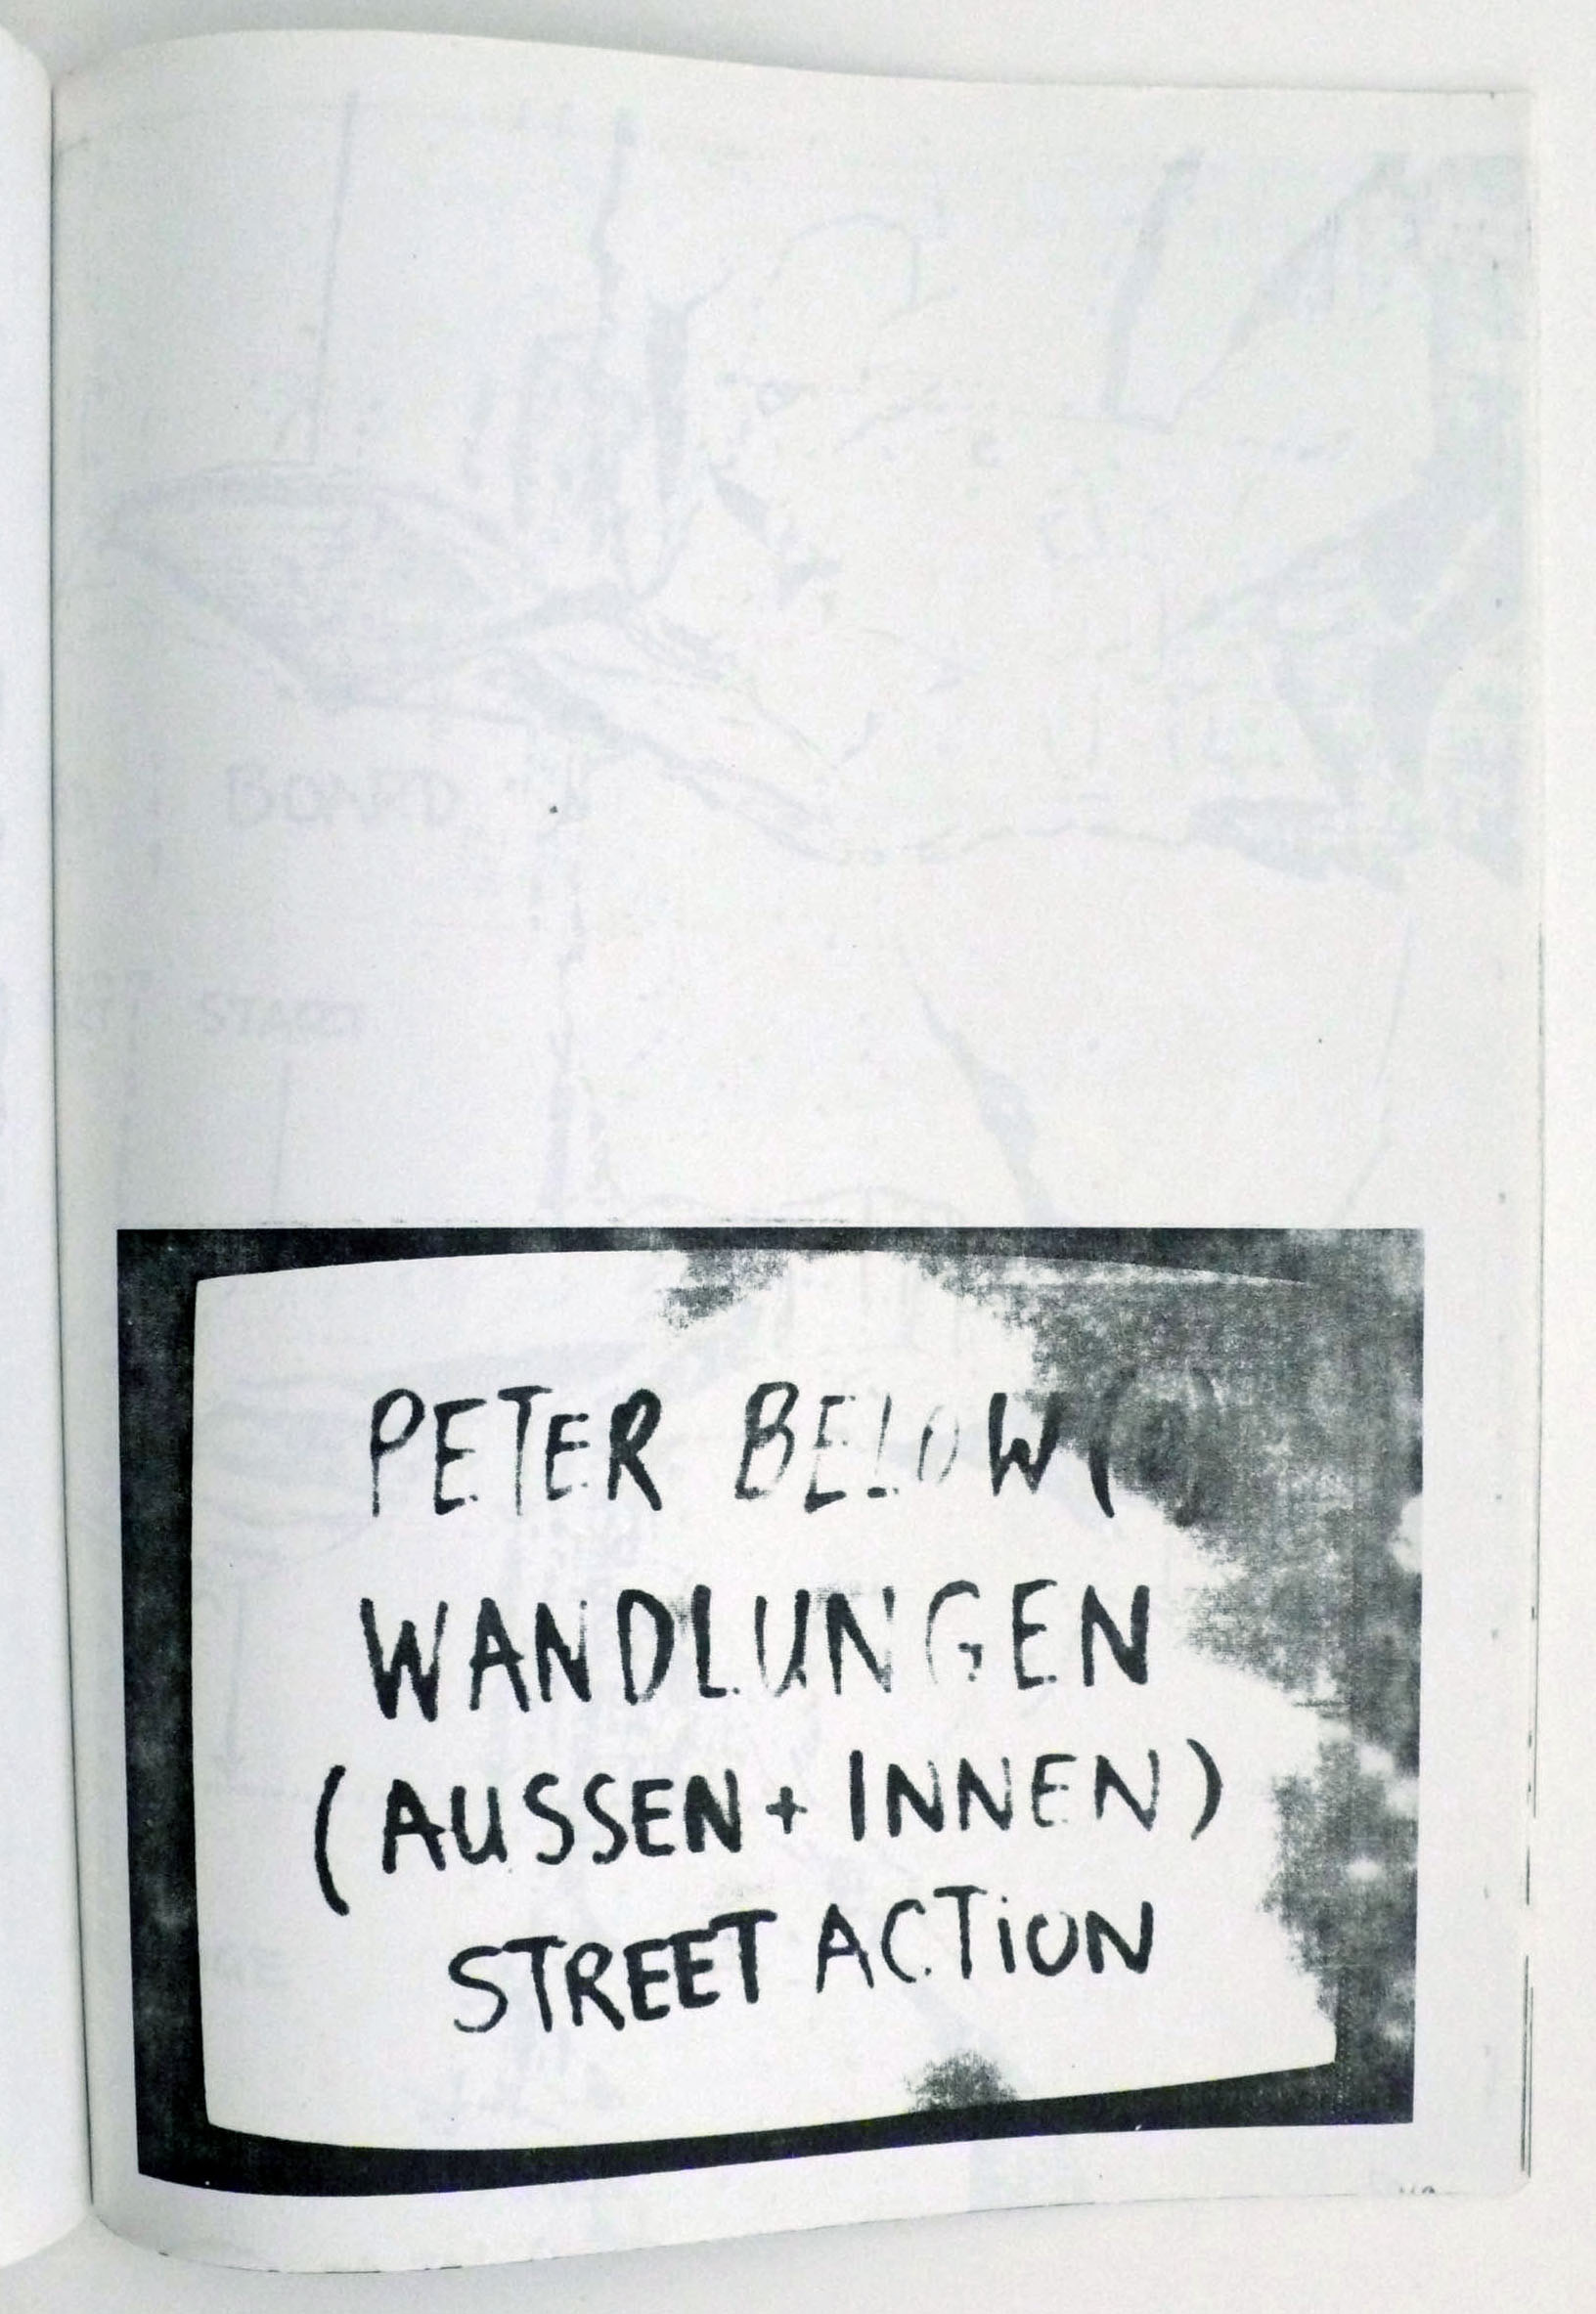 BOARD
START
PETER BELOW,
WANDLUNGEN
(AUSSEN + INNEN)
STREET ACTION